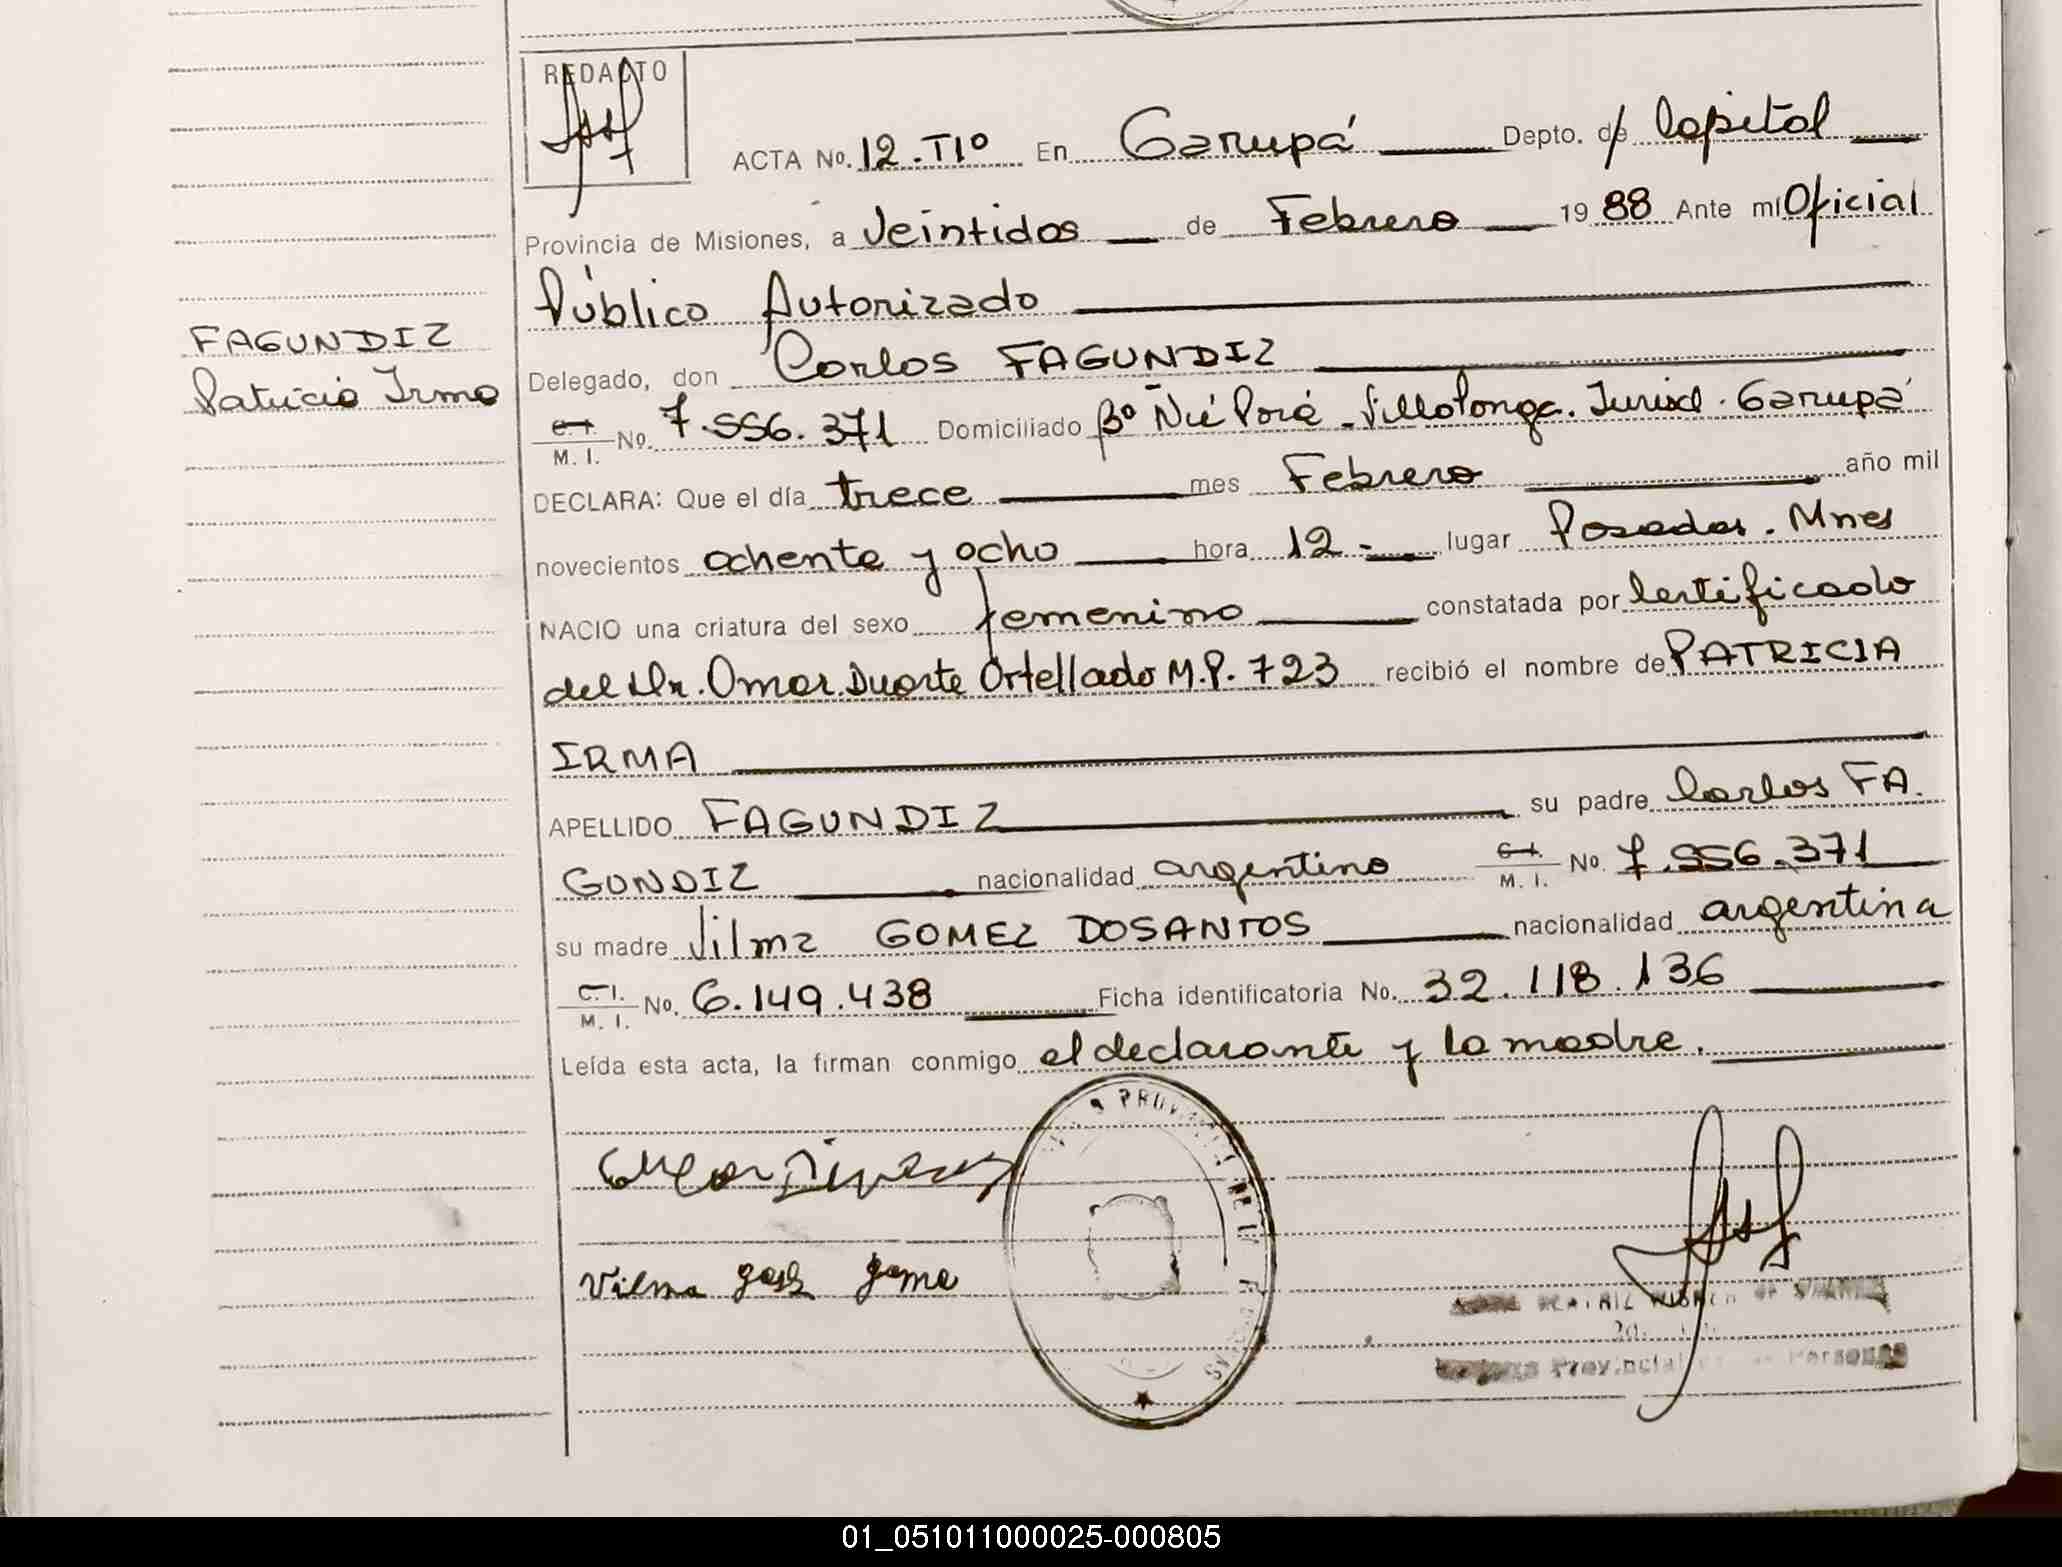 REDACTO
ACTA No. 12.TIº En Garupá Depto. de Capital
Provincia de Misiones, a Veintidos de Febrero 19 88 Ante mí Oficial
Público Autorizado
Delegado, don Carlos FAGUNDIZ
FAGUNDIZ
Patricia Irma
C. I.
M. I. No. 7.556.371 Domiciliado Bº Ñú Porá - Villalonga. Jurisd. Garupá
DECLARA: Que el día trece mes Febrero año mil
novecientos ochenta y ocho hora 12.- lugar Posadas. Mnes
NACIO una criatura del sexo femenino constatada por Certificado
del Dr. Omar Duarte Ortellado M.P. 723 recibió el nombre de PATRICIA
IRMA
APELLIDO FAGUNDIZ su padre Carlos FA.
GUNDIZ nacionalidad argentino C. I. M. I. No. 7.556.371
su madre Vilma GOMEZ DOSANTOS nacionalidad argentina
C. I. M. I. No. 6.149.438 Ficha identificatoria No. 32.118.136
Leída esta acta, la firman conmigo el declarante y la madre.
Vilma
BEATRIZ
Provincial Personas
01_051011000025-000805